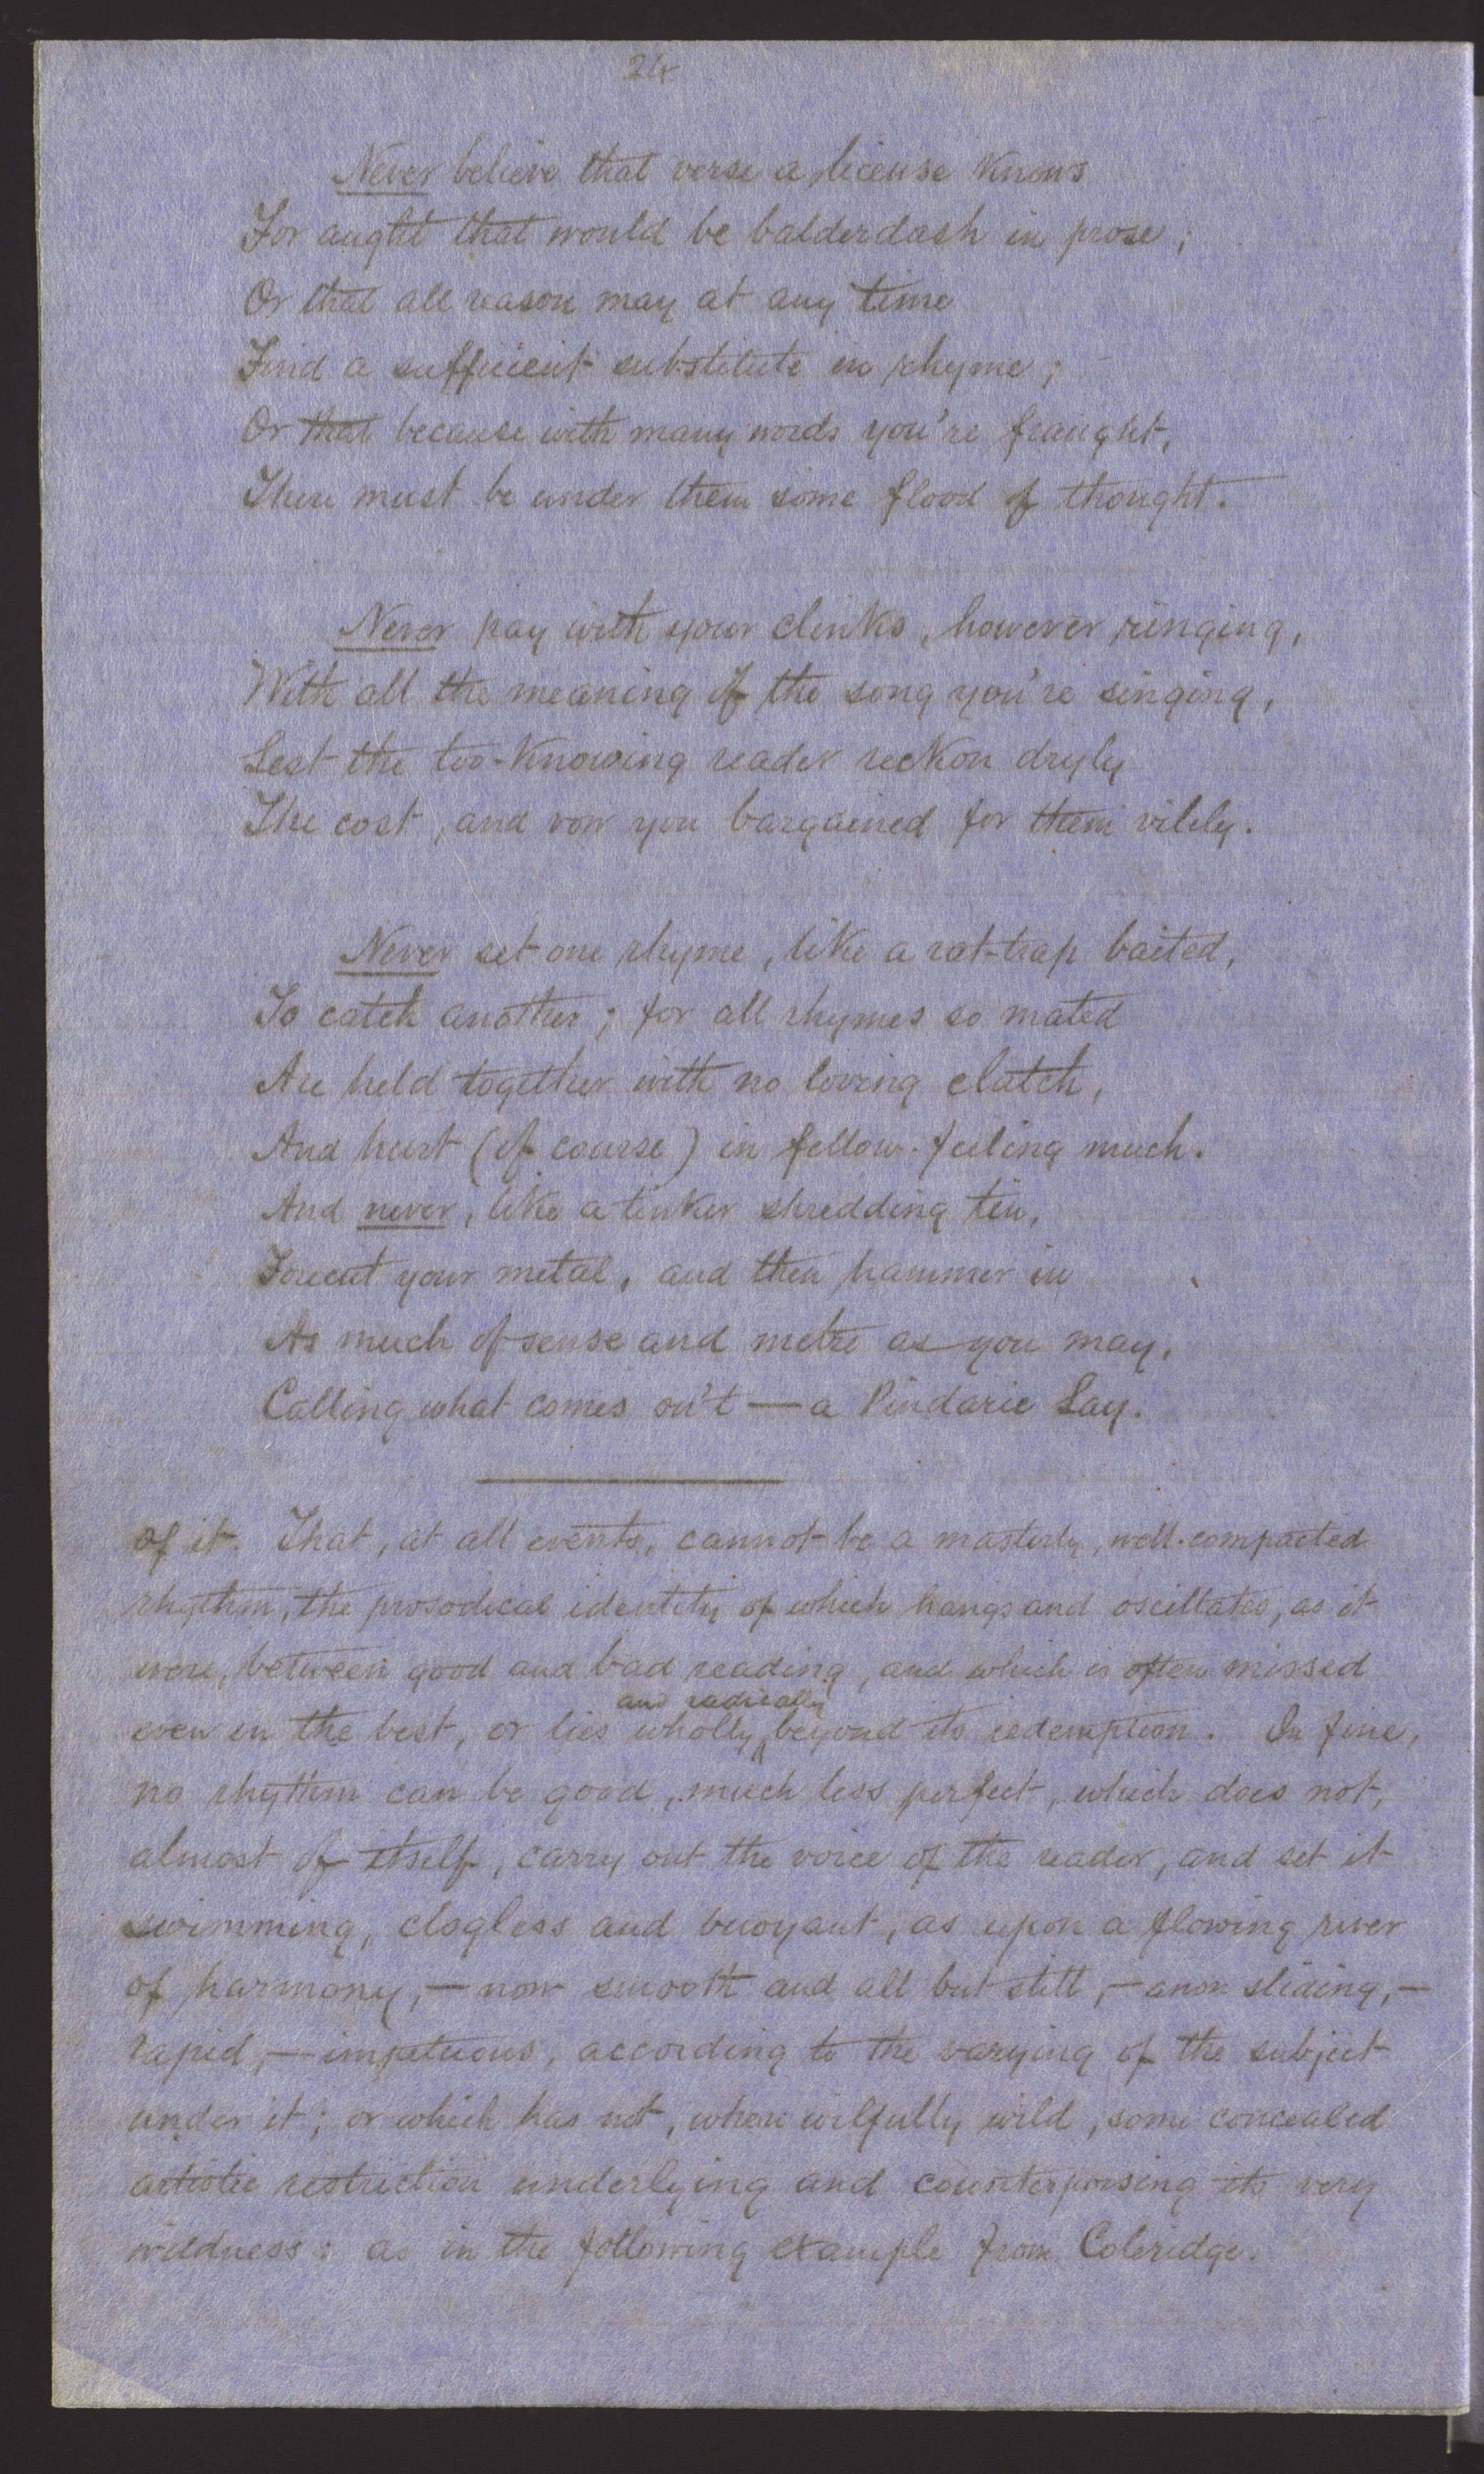 24
Never believe that verse a license knows
For aught that would be balderdash in prose;
Or that all reason may at any time
Find a sufficient substitute in rhyme;
Or that because with many words you're fraught,
There must be under them some flood of thought.
Never pay with your clinks, however ringing,
With all the meaning of the song you're singing,
Lest the too-knowing reader reckon dryly
The cost, and vow you bargained for them vilely.
Never set one rhyme, like a rat-trap baited,
To catch another; for all rhymes so mated
Are held together with no loving clutch,
And hurt (of course) in fellow-feeling much.
And never, like a tinker shredding tin,
Forecut your metal, and then hammer in
As much of sense and metre as you may,
Calling what comes on't — a Pindaric Lay.
of it. That, at all events, cannot be a masterly, well-compacted
rhythm, the prosodical identity of which hangs and oscillates, as it
were, between good and bad reading, and which is often missed
and radically
even in the best, or lies wholly beyond its redemption. In fine,
no rhythm can be good, much less perfect, which does not,
almost of itself, carry out the voice of the reader, and set it
swimming, clogless and buoyant, as upon a flowing river
of harmony, — now smooth and all but still, — anon sliding, —
rapid, — impetuous, according to the varying of the subject
under it; or which has not, when wilfully wild, some concealed
artistic restriction underlying and counterpoising its very
wildness: as in the following example from Coleridge.